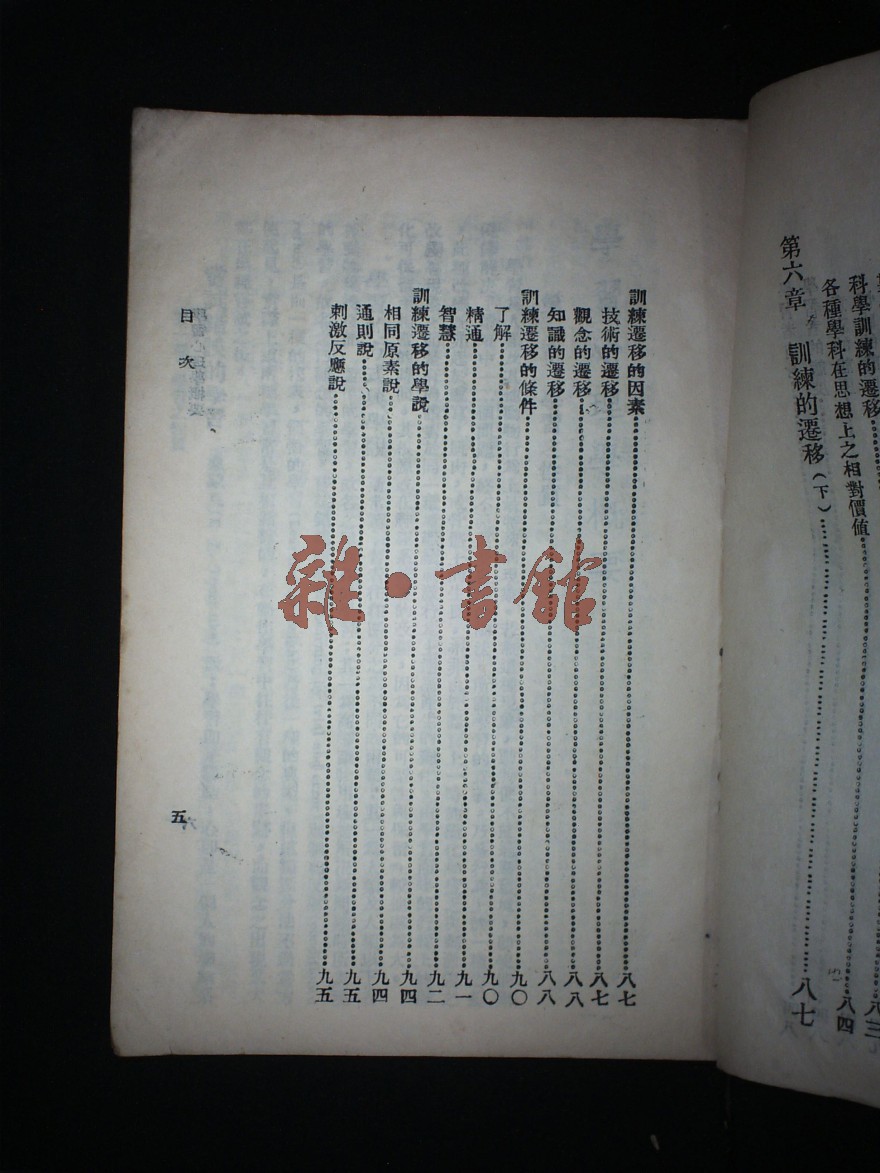 科學訓練的遷移……八三
各種學科在思想上之相對價値……八四
第六章 訓練的遷移(下)……八七
訓練遷移的因素……八七
技術的遷移……八七
觀念的遷移……八八
知識的遷移……八八
訓練遷移的條件……九〇
了解……九〇
精通……九一
智慧……九二
訓練遷移的學說……九四
相同原素說……九四
通則說……九五
刺激反應說……九五
目次
五
雜·書館